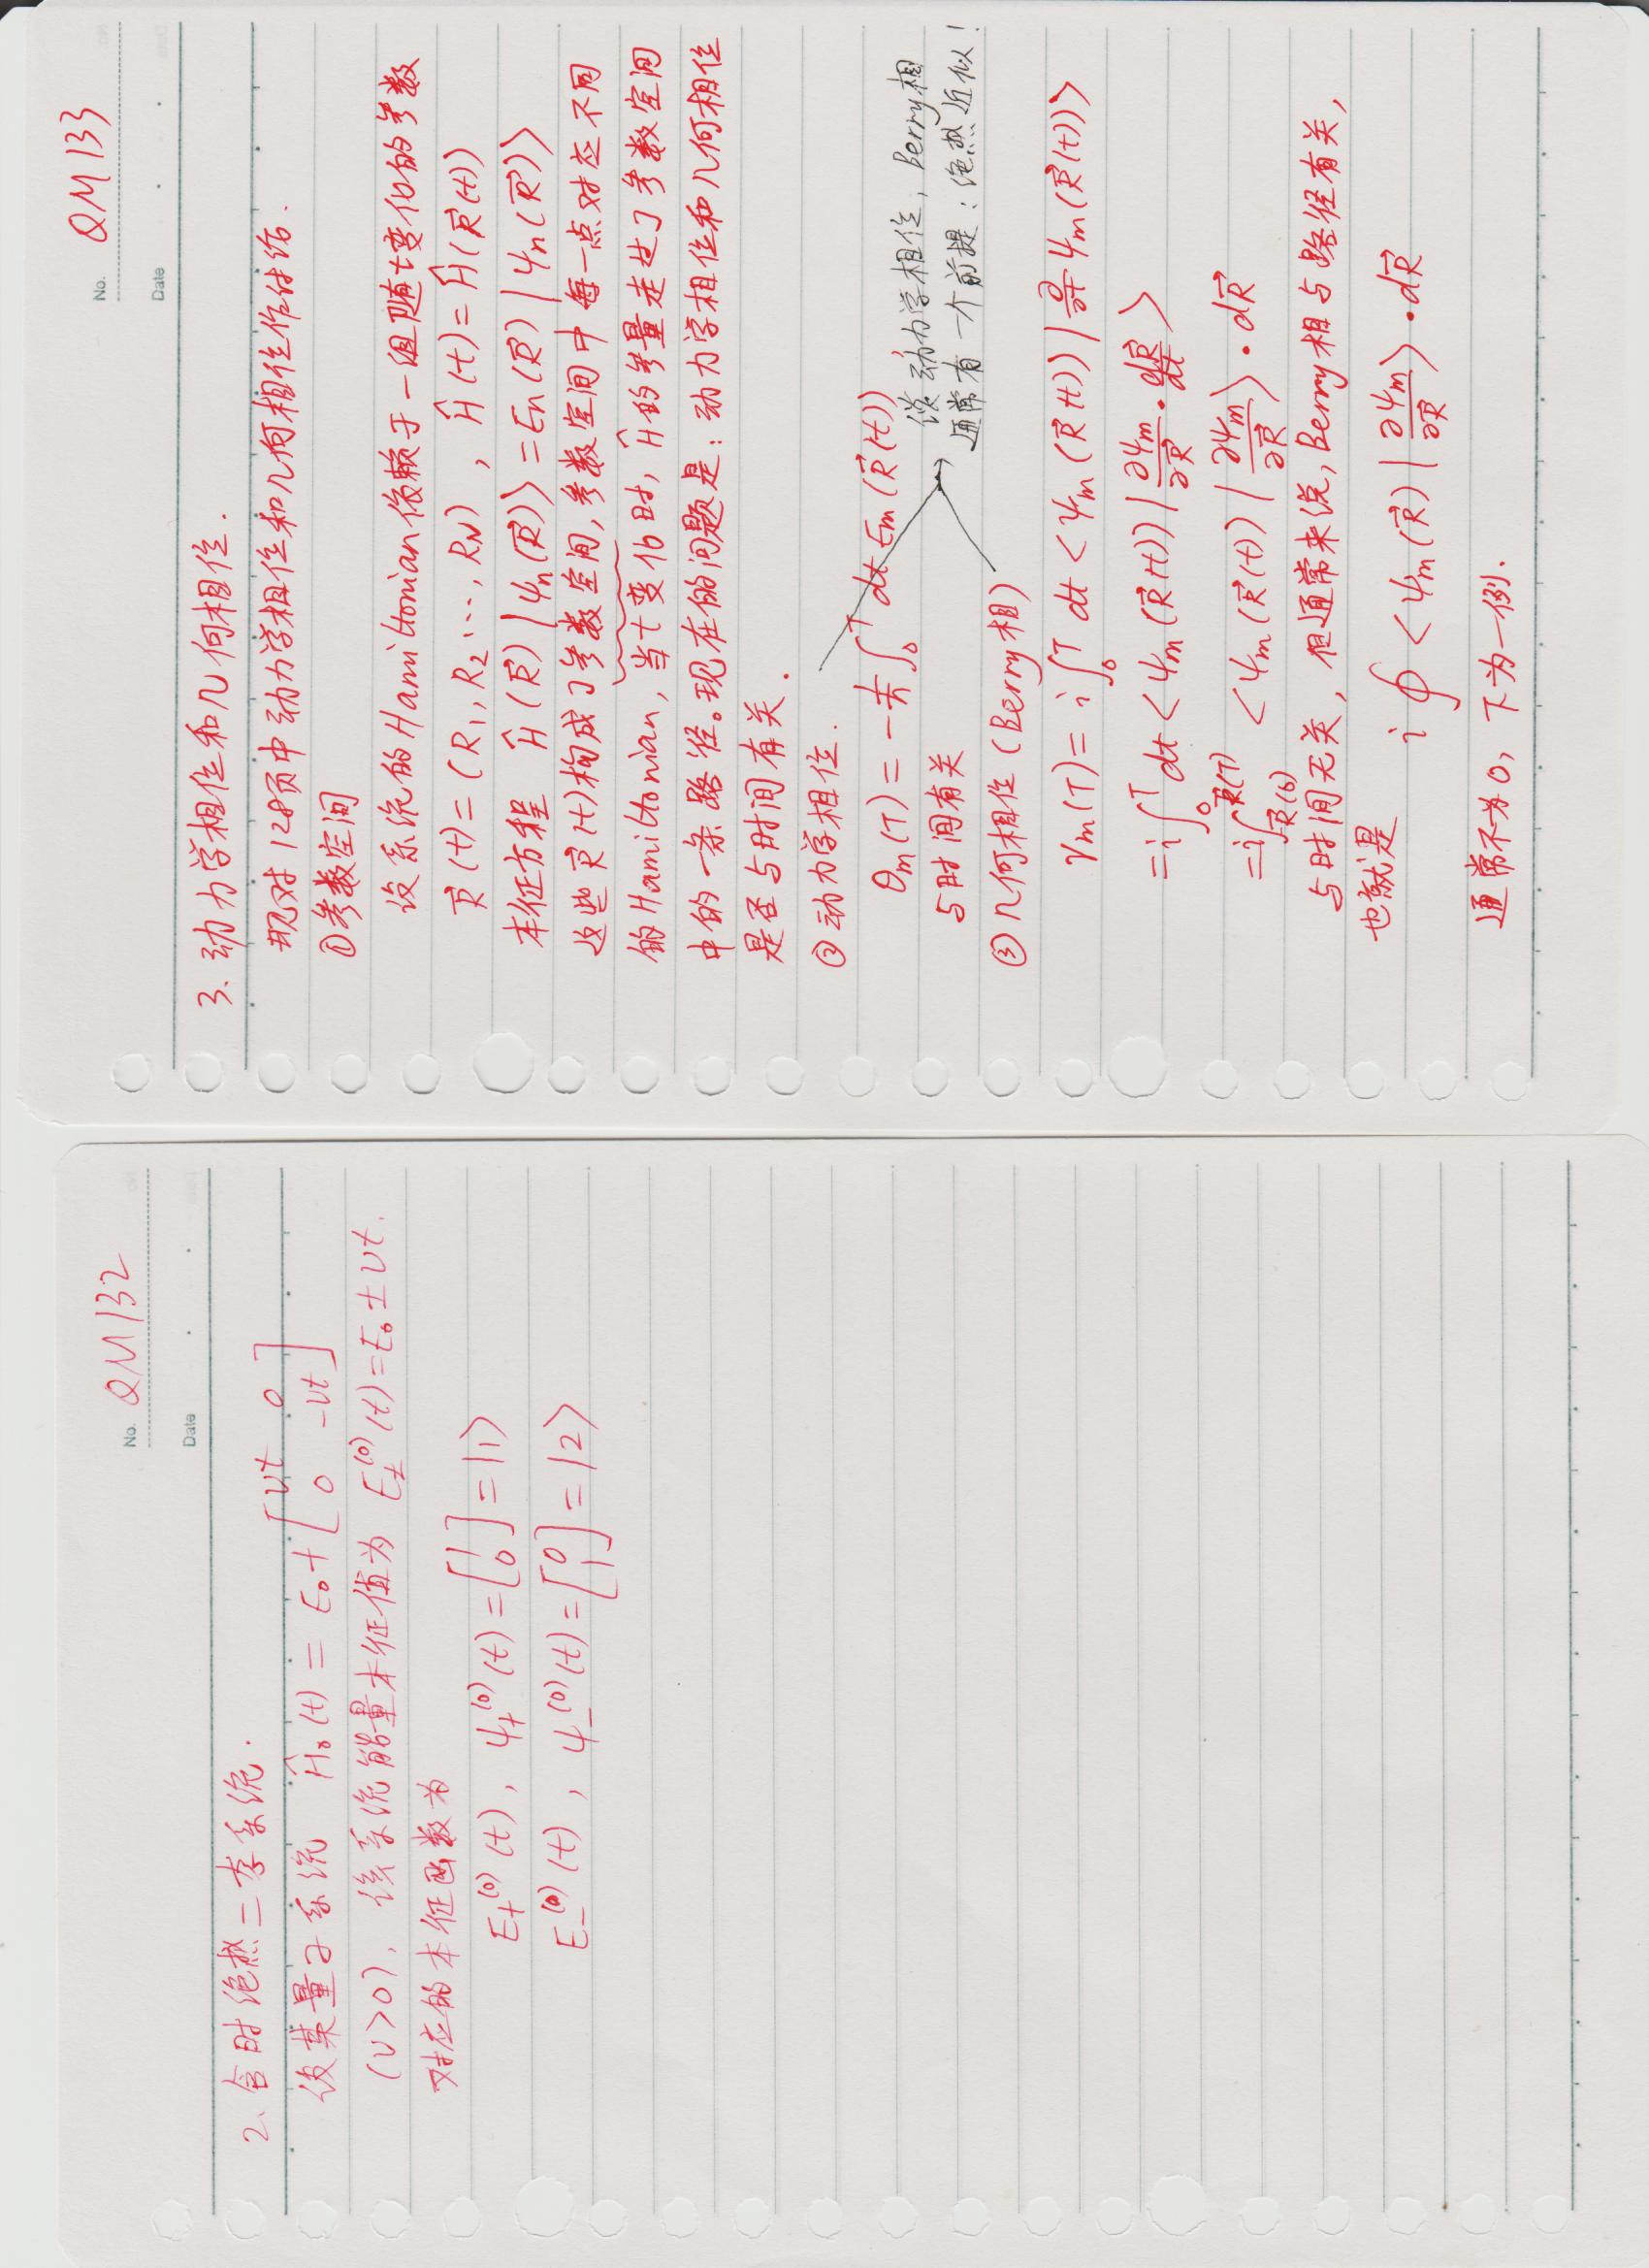 No. QM132
Date
2、含时绝热二态系统.
设某量子系统 Ĥ₀(t) = E₀ + [vt 0; 0 -vt]
(v>0), 该系统能量本征值为 E±⁽⁰⁾(t)=E₀±vt.
对应的本征函数为
E₊⁽⁰⁾(t), ψ₊⁽⁰⁾(t)=[1; 0]=|1>
E₋⁽⁰⁾(t), ψ₋⁽⁰⁾(t)=[0; 1]=|2>
No. QM133
Date
3. 动力学相位和几何相位.
现对128页中动力学相位和几何相位作讨论.
①参数空间
设系统的Hamiltonian依赖于一组随t变化的参数
R⃗(t)=(R₁, R₂ ···, R_N), Ĥ(t)=Ĥ(R⃗(t))
本征方程 Ĥ(R⃗)|ψn(R⃗)>=En(R⃗)|ψn(R⃗)>
这些R⃗(t)构成了参数空间,参数空间中每一点对应不同
的Hamiltonian, 当t变化时, Ĥ的参量走过了参数空间
中的一条路径。现在的问题是: 动力学相位和几何相位
是否与时间有关.
②动力学相位.
θm(T) = -1/ħ ∫₀ᵀ dt Em(R⃗(t))
与时间有关
谈动力学相位, Berry相
通常有一个前提: 绝热近似!
③几何相位(Berry相)
γm(T)= i∫₀ᵀ dt <ψm(R⃗(t))|∂/∂t ψm(R⃗(t))>
=i∫₀ᵀ dt <ψm(R⃗(t))|∂ψm/∂R⃗ · dR⃗/dt>
=i∫_{R⃗(0)}^{R⃗(T)} <ψm(R⃗(t))|∂ψm/∂R⃗> · dR⃗
与时间无关, 但通常来说, Berry相与路径有关,
也就是
i∮<ψm(R⃗)|∂ψm/∂R⃗> · dR⃗
通常不为0, 下为一例.